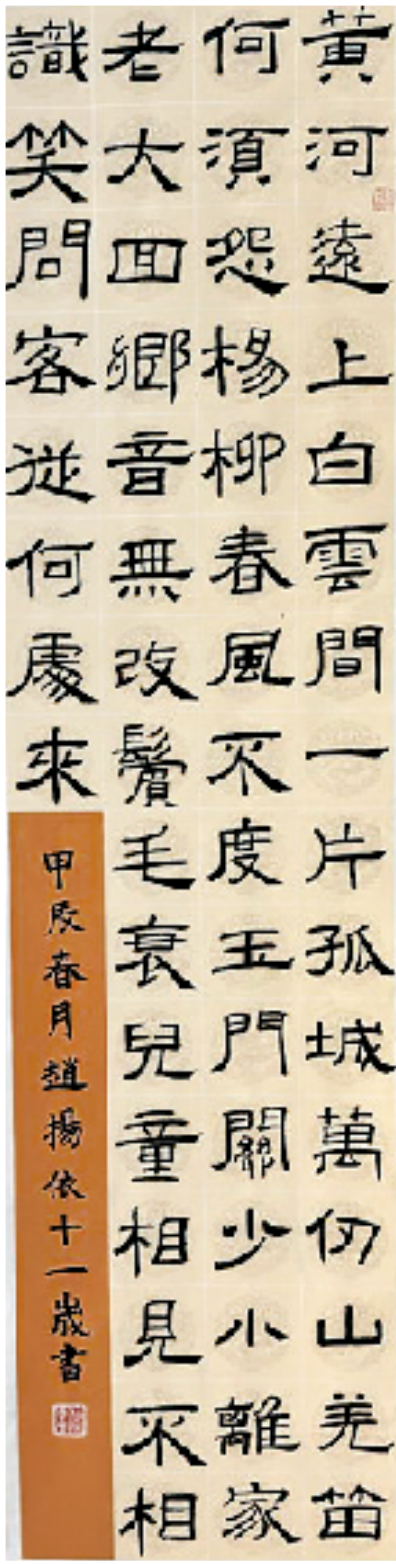 黃河遠上白雲間一片孤城萬仞山羌笛
何須怨楊柳春風不度玉門關少小離家
老大囬鄉音無改鬢毛衰兒童相見不相
識笑問客從何處來
甲辰春月趙揚依十一歲書